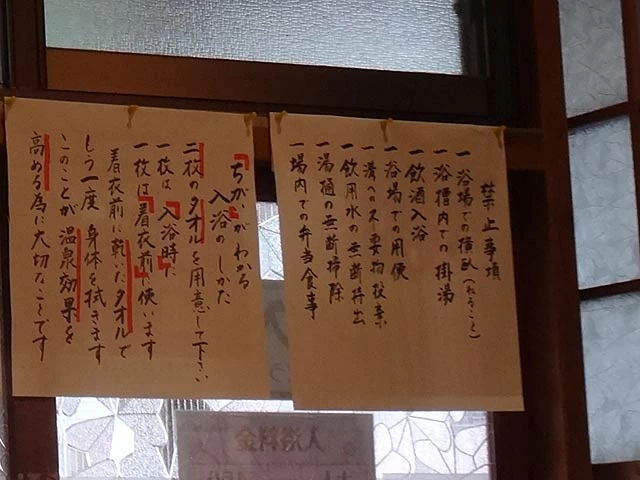 禁止事項
一 浴場での横臥(ねること)
一 浴槽内での掛湯
一 飲酒入浴
一 浴場での用便
一 溝への不要物投棄
一 飲用水の無断持出
一 湯桶の無断掃除
一 場内での弁当食事
ちがいがわかる
入浴のしかた
二枚のタオルを用意して下さい
一枚は入浴時に
一枚は着衣前に使います
着衣前に乾いたタオルで
もう一度 身体を拭きます
このことが温泉効果を
高める為に大切なことです